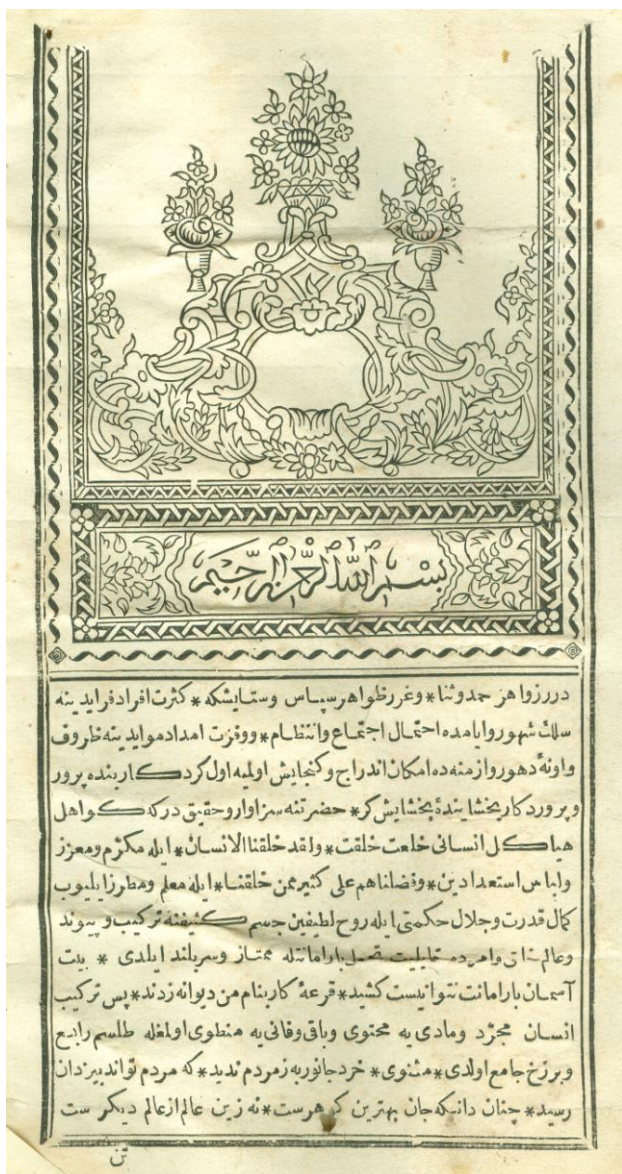 بسم الله الرحمن الرحيم
درر زواهر حمد وثنا * وغرر ظواهر سپاس وستايشكه * كثرت افراد فرايدينه
سلك شهور وايامده احتمال اجتماع وانتظام * ووفرت امداد موايدينه ظروف
واونهٔ دهور وازمنه ده امكان اندراج وكنجايش اولميه اول كردكار بنده پرور
وپروردكار بخشايندهٔ بخشايش كر * حضرتنه سزاوار وحقيق دركه كواهل
هياكل انسانى خلعت خلقت * ولقد خلقنا الانسان * ايله مكرم ومعزز
ولباس استعدادين * وفضلناهم على كثير ممن خلقنا * ايله معلم ومطرز ايليوب
كمال قدرت وجلال حكمتى ايله روح لطيفين جسم كثيفنه تركيب وپيوند
وعالم وامرده قابليت تحمل بار امانتله ممتاز وسربلند ايلدى * بيت
آسمان بار امانت نتوانست كشيد * قرعهٔ كار بنام من ديوانه زدند * پس تركيب
انسان مجرد ومادى يه محتوى وباقى وفانى يه منطوى اولمغله طلسم رابع
وبرزخ جامع اولدى * مثنوى * خرد جانور به ز مردم نديد * كه مردم تواند بيزدان
رسيد * چنان دانكه جان بهترين كوهرست * نه زين عالم از عالم ديكرست